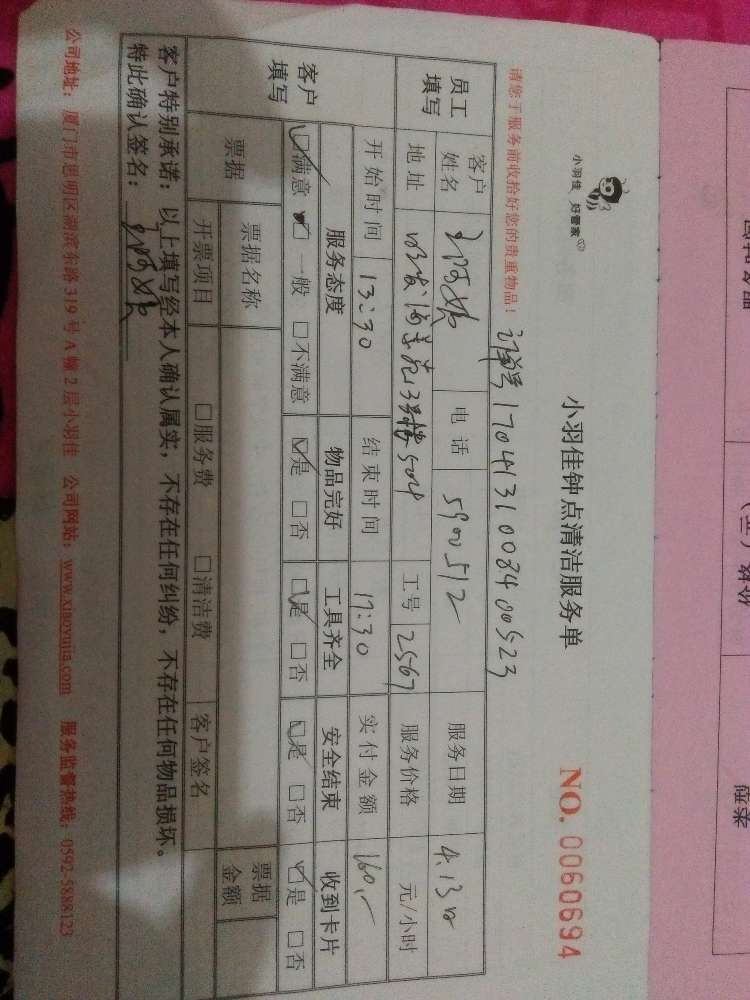 小羽佳 好管家
小羽佳钟点清洁服务单
NO. 0060694
请您于服务前收拾好您的贵重物品！
订单号1704131008400523
员工填写 客户姓名 电话 5900512 服务日期 4.13
地址 3号楼504 工号 2567 服务价格 元/小时
开始时间 13:30 结束时间 17:30 实付金额 160.-
客户填写 服务态度 物品完好 工具齐全 安全结束 收到卡片
☑满意 □一般 □不满意 ☑是 □否 ☑是 □否 ☑是 □否 ☑是 □否
票据 票据名称 票据金额
开票项目 □服务费 □清洁费 客户签名
客户特别承诺：以上填写经本人确认属实，不存在任何纠纷，不存在任何物品损坏。
特此确认签名：
公司地址：厦门市思明区湖滨东路319号A幢2层小羽佳 公司网站：www.xiaoyujia.com 服务监督热线：0592-5888123